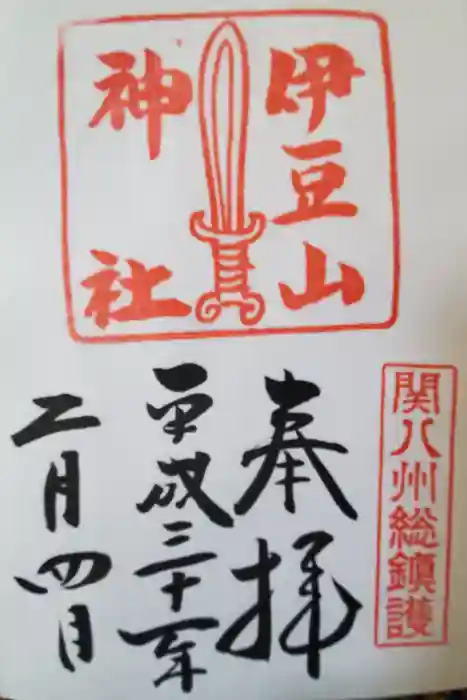 伊豆山
神社
関八州総鎮護
奉拝
平成三十年
二月四日